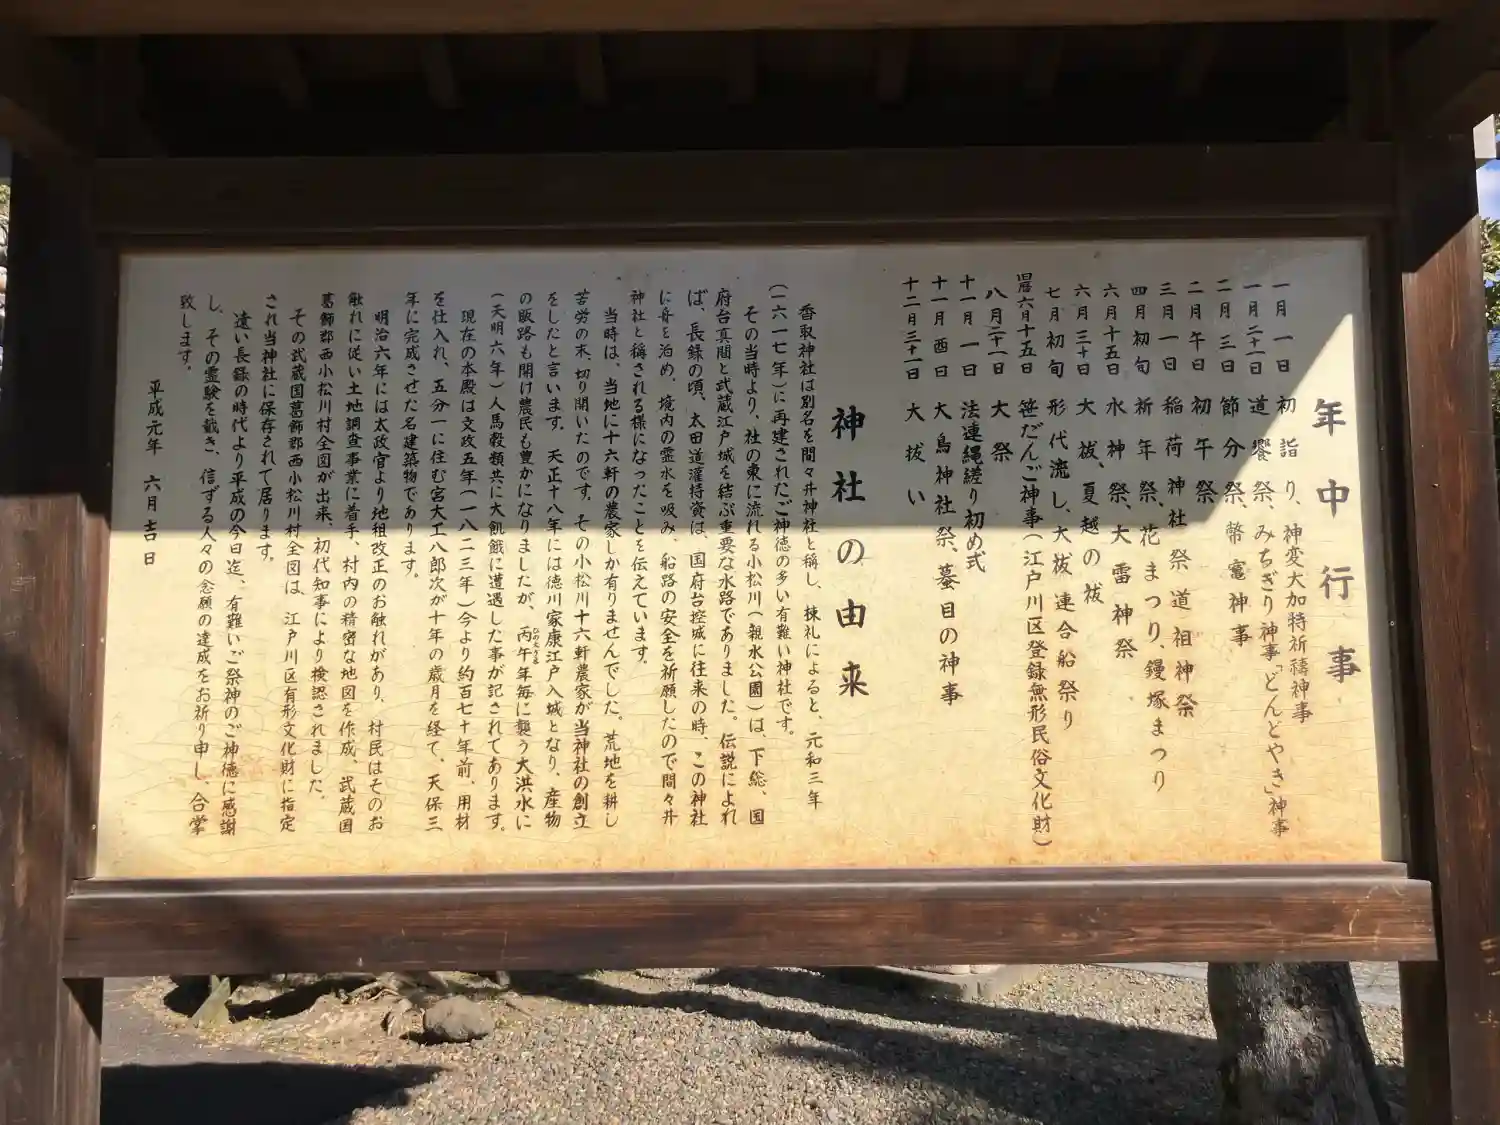 年中行事
一月一日 初詣り、神変大加特祈禱神事
一月二十一日 道饗祭、みちぎり神事「どんどやき」神事
二月三日 節分祭、幣竈神事
二月午日 初午祭
三月一日 稲荷神社祭道祖神祭
四月初旬 祈年祭、花まつり、鏝塚まつり
六月十五日 水神祭、大雷神祭
六月三十日 大祓、夏越の祓
七月初旬 形代流し、大祓連合船祭り
旧暦六月十五日 笹だんご神事(江戸川区登録無形民俗文化財)
八月二十一日 大祭
十一月一日 法連縄縒り初め式
十一月酉日 大鳥神社祭、蟇目の神事
十二月三十一日 大祓い
神社の由来
香取神社は別名を間々井神社と称し、棟礼によると、元和三年
(一六一七年)に再建されたご神徳の多い有難い神社です。
その当時より、社の東に流れる小松川(親水公園)は、下総、国
府台真間と武蔵江戸城を結ぶ重要な水路でありました。伝説によれ
ば、長録の頃、太田道灌持資は、国府台控城に往来の時、この神社
に舟を泊め、境内の霊水を吸み、船路の安全を祈願したので間々井
神社と称される様になったことを伝えています。
当時は、当地に十六軒の農家しか有りませんでした。荒地を耕し
苦労の末、切り開いたのです。その小松川十六軒農家が当神社の創立
をしたと言います。天正十八年には徳川家康江戸入城となり、産物
の販路も開け農民も豊かになりましたが、丙午年毎に襲う大洪水に
ひのえうま
(天明六年)人馬穀類共に大飢餓に遭遇した事が記されてあります。
現在の本殿は文政五年(一八二三年)今より約百七十年前、用材
を仕入れ、五分一に住む宮大工八郎次が十年の歳月を経て、天保三
年に完成させた名建築物であります。
明治六年には太政官より地租改正のお触れがあり、村民はそのお
触れに従い土地調査事業に着手、村内の精密な地図を作成、武蔵国
葛飾郡西小松川村全図が出来、初代知事により検認されました。
その武蔵国葛飾郡西小松川村全図は、江戸川区有形文化財に指定
され当神社に保存されて居ります。
遠い長録の時代より平成の今日迄、有難いご祭神のご神徳に感謝
し、その霊験を戴き、信ずる人々の念願の達成をお祈り申し、合掌
致します。
平成元年 六月吉日